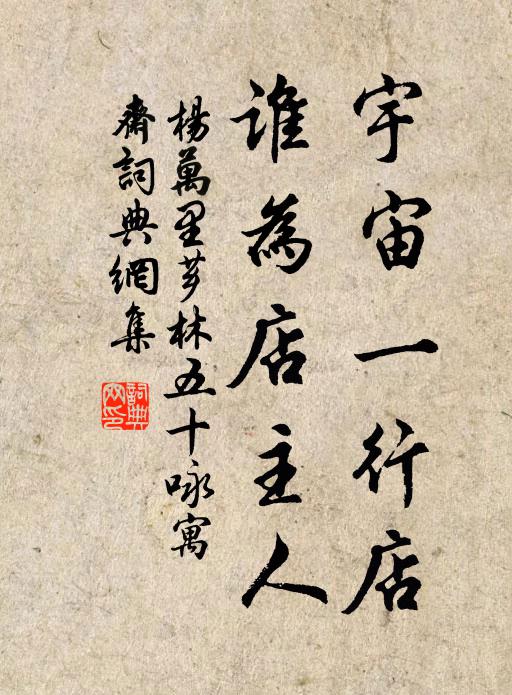 宇宙一行店
誰為店主人
楊萬里芗林五十咏寓
齋詞典網集
詞典
网印